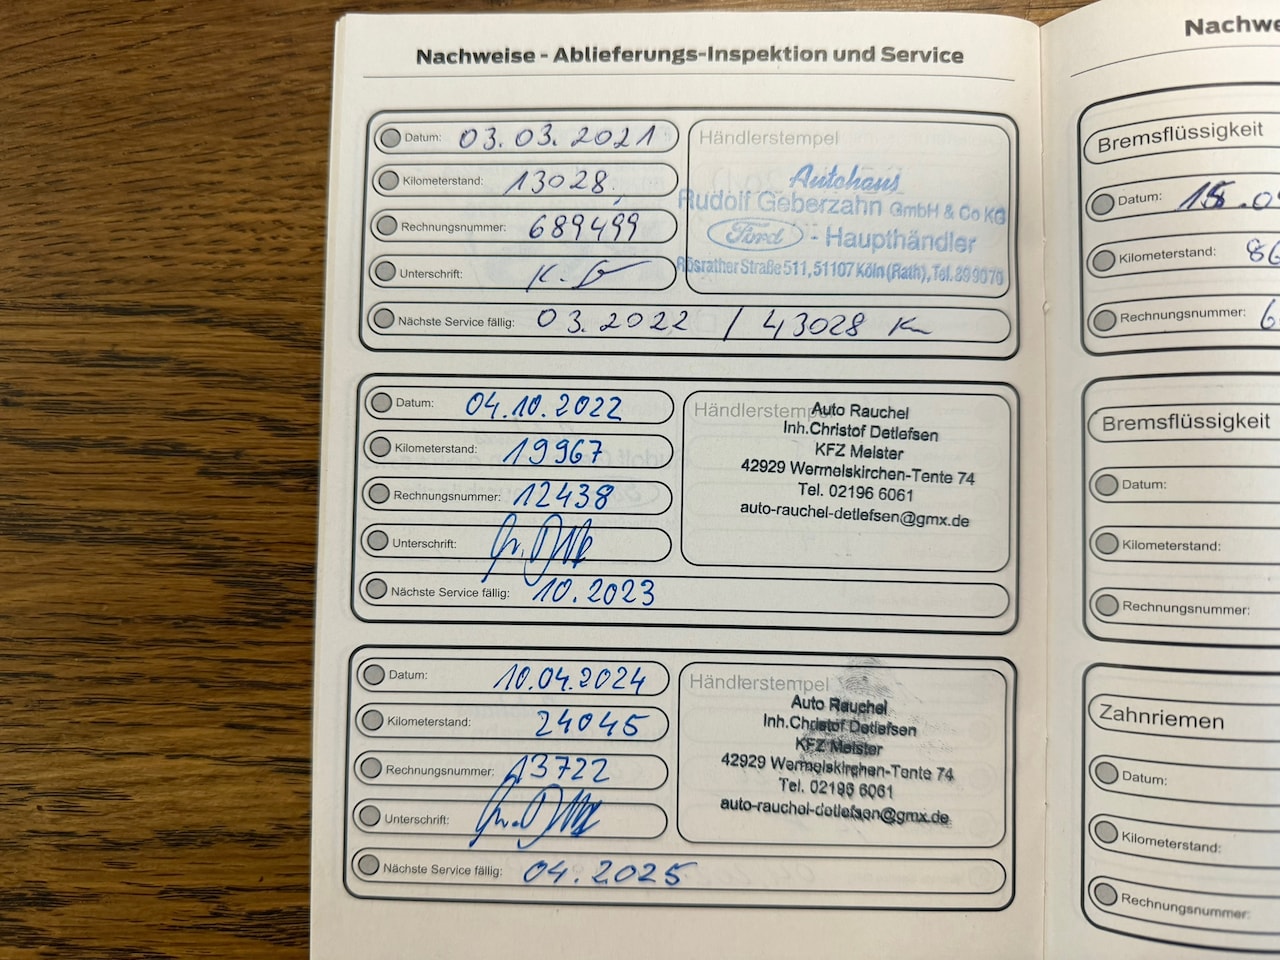 Nachweise - Ablieferungs-Inspektion und Service
Datum: 03.03.2021
Kilometerstand: 13028
Rechnungsnummer: 689499
Unterschrift:
Nächste Service fällig: 03.2022 / 43028 Km
Händlerstempel
Autohaus
Rudolf Geberzahn GmbH & Co KG
Ford - Haupthändler
Rösrather Straße 511, 51107 Köln (Rath), Tel. 89 90 70
Datum: 04.10.2022
Kilometerstand: 19967
Rechnungsnummer: 12438
Unterschrift:
Nächste Service fällig: 10.2023
Händlerstempel
Auto Rauchel
Inh.Christof Detlefsen
KFZ Meister
42929 Wermelskirchen-Tente 74
Tel. 02196 6061
auto-rauchel-detlefsen@gmx.de
Datum: 10.04.2024
Kilometerstand: 24045
Rechnungsnummer: 13722
Unterschrift:
Nächste Service fällig: 04.2025
Händlerstempel
Auto Rauchel
Inh.Christof Detlefsen
KFZ Meister
42929 Wermelskirchen-Tente 74
Tel. 02196 6061
auto-rauchel-detlefsen@gmx.de
Bremsflüssigkeit
Datum:
Kilometerstand:
Rechnungsnummer:
Bremsflüssigkeit
Datum:
Kilometerstand:
Rechnungsnummer:
Zahnriemen
Datum:
Kilometerstand:
Rechnungsnummer: